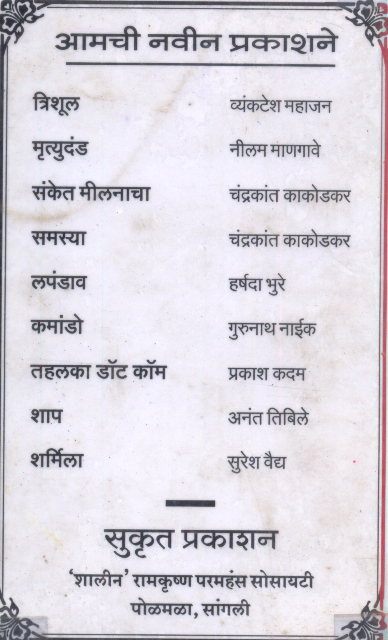 आमची नवीन प्रकाशने
त्रिशूल व्यंकटेश महाजन
मृत्युदंड नीलम माणगावे
संकेत मीलनाचा चंद्रकांत काकोडकर
समस्या चंद्रकांत काकोडकर
लपंडाव हर्षदा भुरे
कमांडो गुरुनाथ नाईक
तहलका डॉट कॉम प्रकाश कदम
शाप अनंत तिबिले
शर्मिला सुरेश वैद्य
सुकृत प्रकाशन
‘शालीन’ रामकृष्ण परमहंस सोसायटी
पोळमळा, सांगली